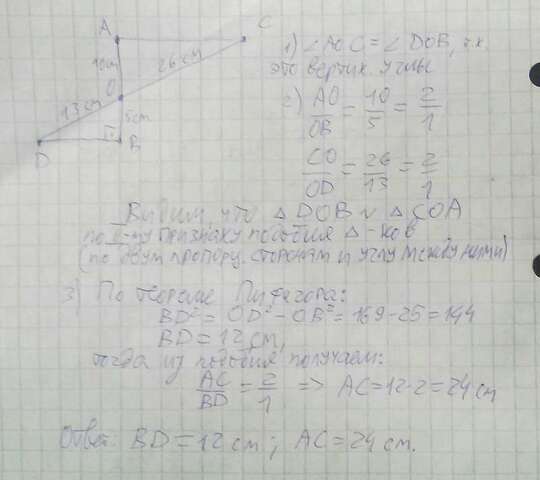 A
C
10см
26см
O
13см
5см
D
B
1) ∠AOC = ∠DOB, т.к.
это вертик. углы
2) AO/OB = 10/5 = 2/1
CO/OD = 26/13 = 2/1
Видим, что △DOB ~ △COA
по признаку подобия △-ков
(по двум пропорц. сторонам и углу между ними)
3) По теореме Пифагора:
BD² = OD² - OB² = 169 - 25 = 144
BD = 12 см,
тогда из подобия получаем:
AC/BD = 2/1 => AC = 12·2 = 24 см
Ответ: BD = 12 см; AC = 24 см.